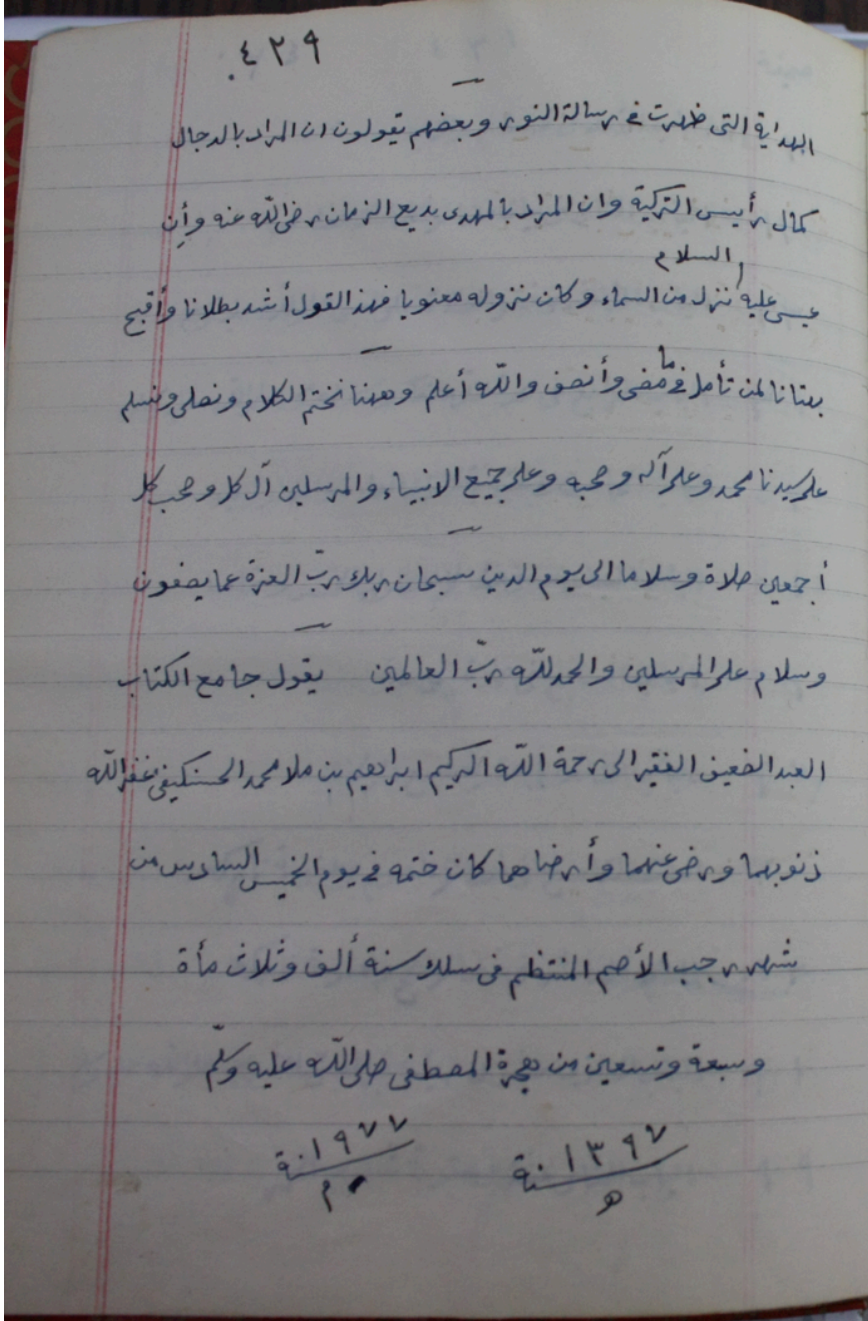 ٤٢٩
الهداية التى ظهرت فى رسالة النور وبعضهم يقولون ان المراد بالدجال
كمال رأيس التركية وان المراد بالمهدى بديع الزمان رضى الله عنه وأن
السلام
عيسى عليه نزل من السماء وكان نزوله معنويا فهذ القول أشد بطلانا وأقبح
بهتانا لمن تأمل فى ما مضى وأنصف والله أعلم وههنا نختم الكلام ونصلى ونسلم
على سيدنا محمد وعلى آله وصحبه وعلى جميع الانبياء والمرسلين آل كل وصحب كل
أجمعين صلاة وسلاما الى يوم الدين سبحان ربك ربّ العزة عما يصفون
وسلام على المرسلين والحمد للّه ربّ العالمين يقول جامع الكتاب
العبد الضعيف الفقير الى رحمة اللّه الركيم ابراهيم بن ملا محمد الحسنكيفى غفر اللّه
ذنوبهما ورضى عنهما وأرضاهما كان ختمه فى يوم الخميس السادس من
شهر رجب الأصم المنتظم فى سلك سنة ألف وثلاث مأة
وسبعة وتسعين من هجرة المصطفى صلى اللّه عليه وسلّم
١٣٩٧ سنة ١٩٧٧ سنة
ه م